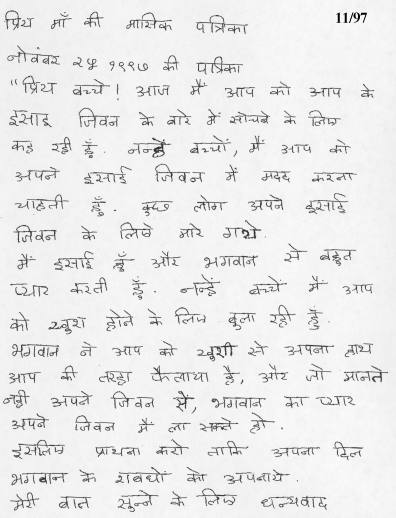 11/97
प्रिय माँ की मासिक पत्रिका
नोवंबर २५ १९९७ की पात्रिका
“प्रिय बच्चे! आज मैं आप को आप के
इसाइ जिवन के बारे में सोचबे के लिए
कह रही हूँ. नन्हें बच्चों, मैं आप को
अपने इसाई जिवन में मदद करना
चाहती हूँ. कुछ लोग अपने इसाई
जिवन के लिऐ मारे गये.
मैं इसाई हूँ और भगवान से बहुत
प्यार करती हूँ. नन्हें बच्चें मैं आप
को खुश होने के लिए बुला रही हूँ.
भगवान ने आप को खुशी से अपना हाथ
आप की तरहा फैलाया है, और जो मानते
नही अपने जिवन से, भगवान का प्यार
अपने जिवन में ला सकते हो.
इसलिए प्राथना करो ताकि अपना दिल
भगवान के शबधों को अपनाये.
मेरी बात सुन्ने के लिए धन्यवाद